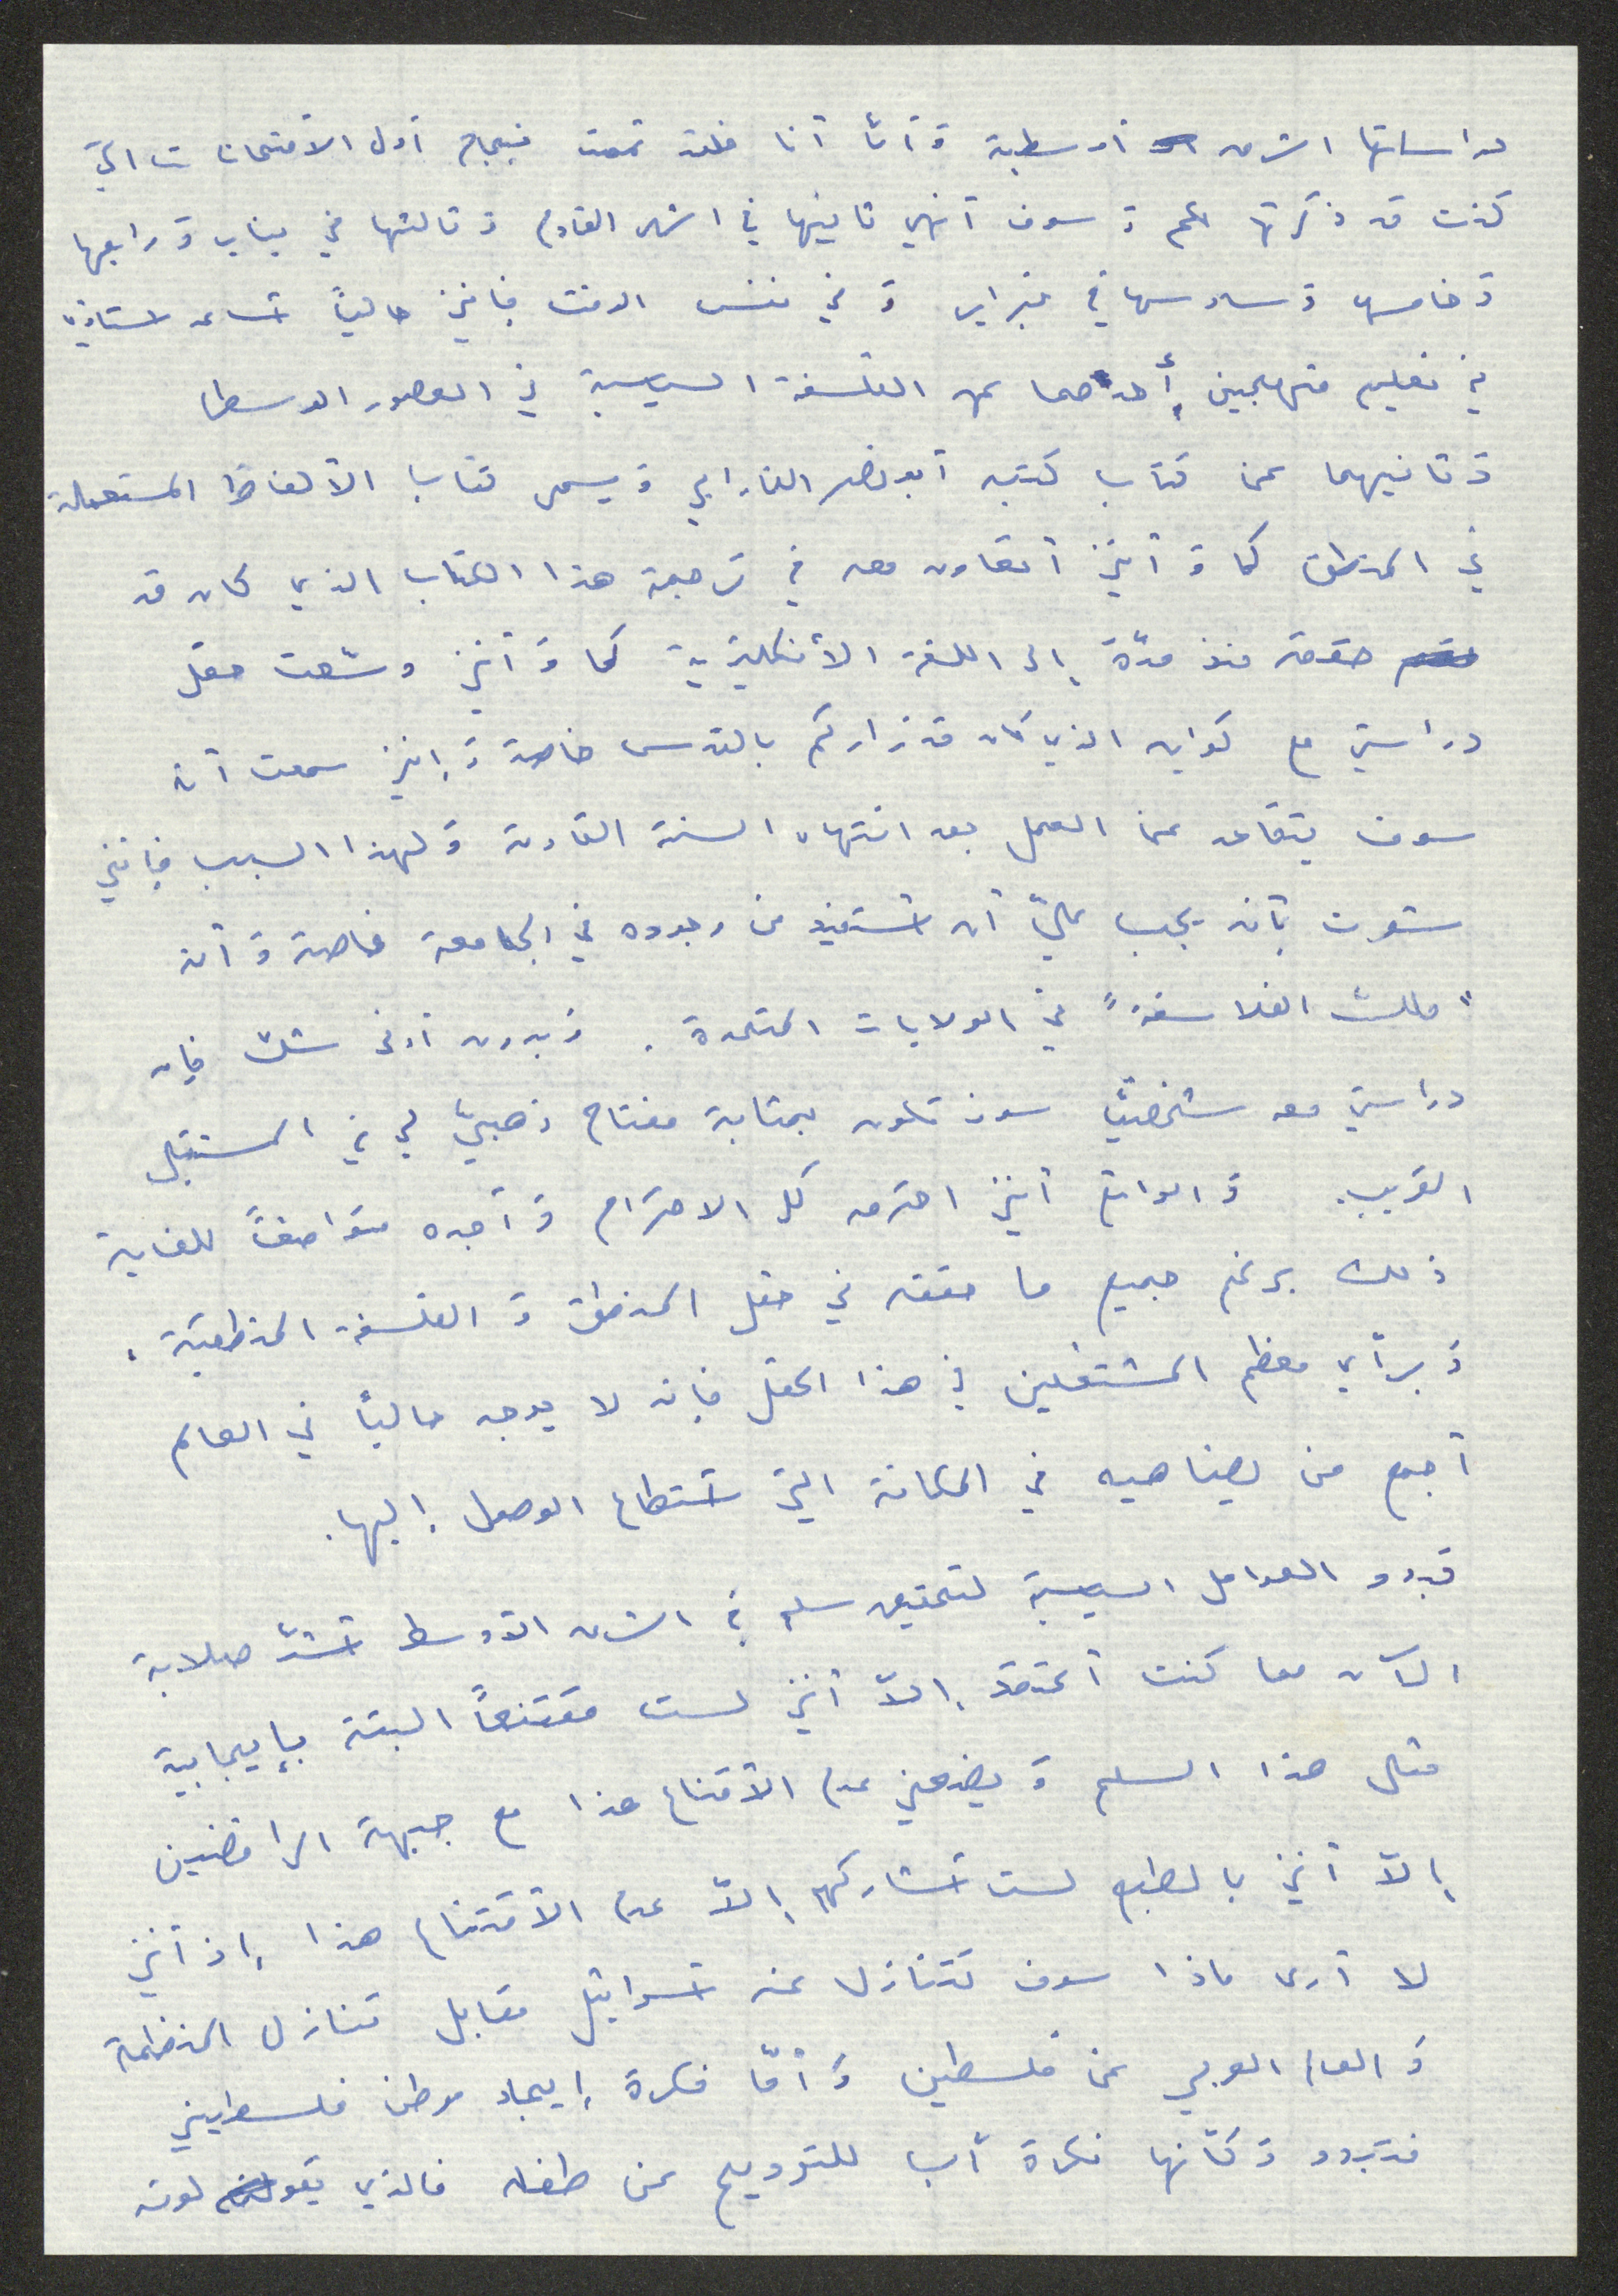 دراساتها الشرق أوسطية وَأمّا أنا فلقد قمت بنجاح أول الأمتحانات التي
كنت قد ذكرتها لكم وَ سوف أنهي ثانيها في الشهر القادم وَ ثالثها في يناير وَ رابعها
وَ خامسها وَ سادسها في فبراير وَ في نفس الوقت فإنني حالياً أساعد أستاذي
في تعليم منهجين أحدهما عن الفلسفة السياسية في العصور الوسطى
وَ ثانيهما عن كتاب كتبه أبو نصر الفارابي وَ يسمى كتاب الألفاظ المستعملة
في المنطق كما وَ أنني أتعاون معه في ترجمة هذا الكتاب الذي كان قد
حققه منذ مدّة إلى اللغة الأنكليزية كما وَ أنني وسّعت حقل
دراستي مع كواين الذي كان قد زاركم بالقدس خاصة وَ إنني سمعت أنه
سوف يتقاعد عن العمل بعد انتهاء السنة القادمة وَ لهذا السبب فإنني
شعرت بأنه يجب عليّ أن أستفيد من وجوده في الجامعة خاصة وَ أنه
"ملك الفلاسفة" في الولايات المتحدة. وَ بدون أدنى شك فإن
دراستي معه شخصيّاً سوف تكون بمثابة مفتاح ذهبيّ لي في المستقبل
القريب. وَ الواقع أنني احترمه كل الاحترام وَ أجده متواضعاً للغاية
ذلك برغم جميع ما حققه في حقل المنطق وَ الفلسفة المنطقية.
وَ برأي معظم المشتغلين في هذا الحقل فإنه لا يوجد حالياً في العالم
أجمع من يضاهيه في المكانة التي أستطاع الوصول إليها.
تبدو العوامل السياسية لتحقيق سلم في الشرق الأوسط أشدّ صلابة
الآن مما كنت أعتقد إلاّ أنني لست مقتنعاً البتة بإيجابية
مثل هذا السلم وَ يضعني عدم الأقتناع هذا مع جبهة الرافضين
إلاّ أنني بالطبع لست أشاركهم إلاّ عدم الأقتناع هذا إذ أنني
لا أرى ماذا سوف تتنازل عنه أسرائيل مقابل تنازل المنظمة
وَ العالم العربي عن فلسطين وَ أمّا فكرة إيجاد موطن فلسطيني
فتبدو وَ كأنها فكرة أب للترويح عن طفله فالذي يقول لونه